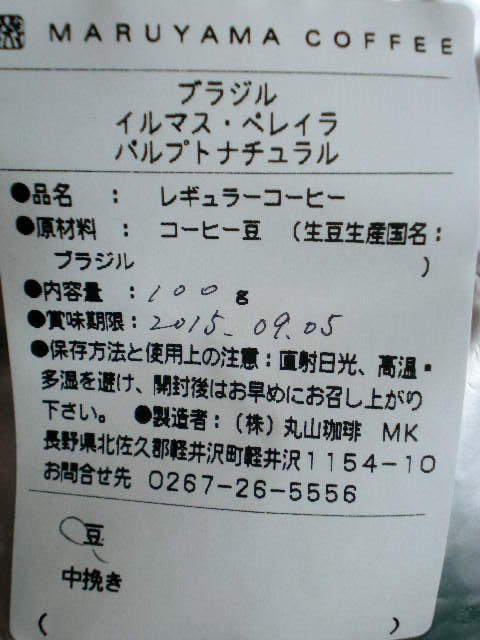 MARUYAMA COFFEE
ブラジル
イルマス・ペレイラ
パルプトナチュラル
●品名 : レギュラーコーヒー
●原材料 : コーヒー豆 (生豆生産国名:
ブラジル )
●内容量 : 100 g
●賞味期限: 2015.09.05
●保存方法と使用上の注意:直射日光、高温・
多湿を避け、開封後はお早めにお召し上がり
下さい。 ●製造者:(株)丸山珈琲 MK
長野県北佐久郡軽井沢町軽井沢1154-10
お問合せ先 0267-26-5556
豆
中挽き
( )